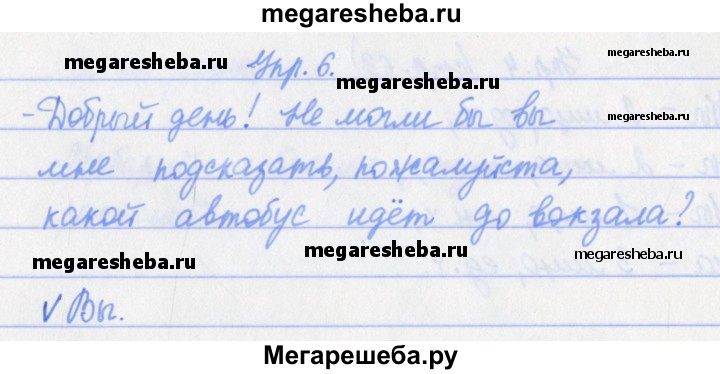 megaresheba.ru
Упр. 6.
megaresheba.ru
megaresheba.ru
megaresheba.ru
- Добрый день! Не могли бы вы
мне подсказать, пожалуйста,
какой автобус идёт до вокзала?
megaresheba.ru
megaresheba.ru
megaresheba.ru
√ Вы.
Мегарешеба.ру